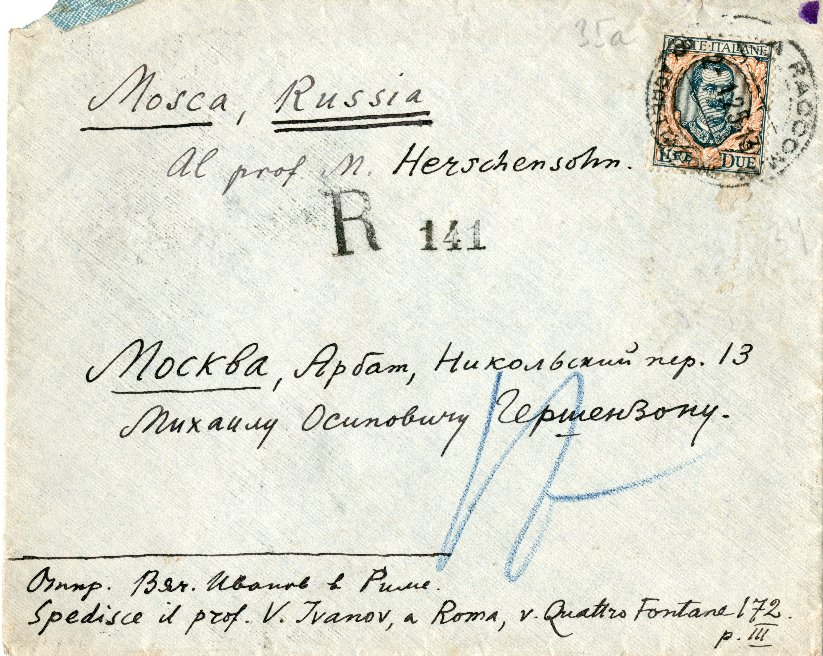 35a
POSTE·ITALIANE
LIRE DUE
RACCOM
Mosca, Russia
Al prof M. Herschensohn.
R 141
Москва, Арбат, Никольский пер. 13
Михаилу Осиповичу Гершензону.
Отпр. Вяч. Иванов в Риме.
Spedisce il prof. V. Ivanov, a Roma, v. Quattro Fontane 172.
p. III